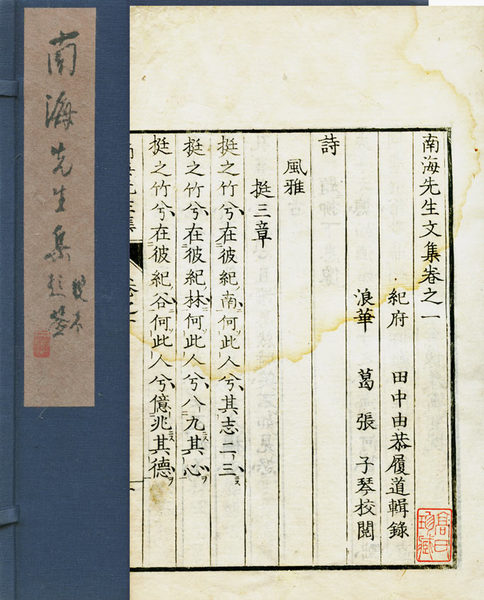 南海先生集
南海先生文集卷之一
紀府 田中由恭履道輯錄
浪華 葛張子琴校閱
詩
風雅
挺三章
挺之竹兮在彼紀南何此人兮其志二三
挺之竹兮在彼紀林何此人兮八九其心
挺之竹兮在彼紀谷何此人兮億兆其德